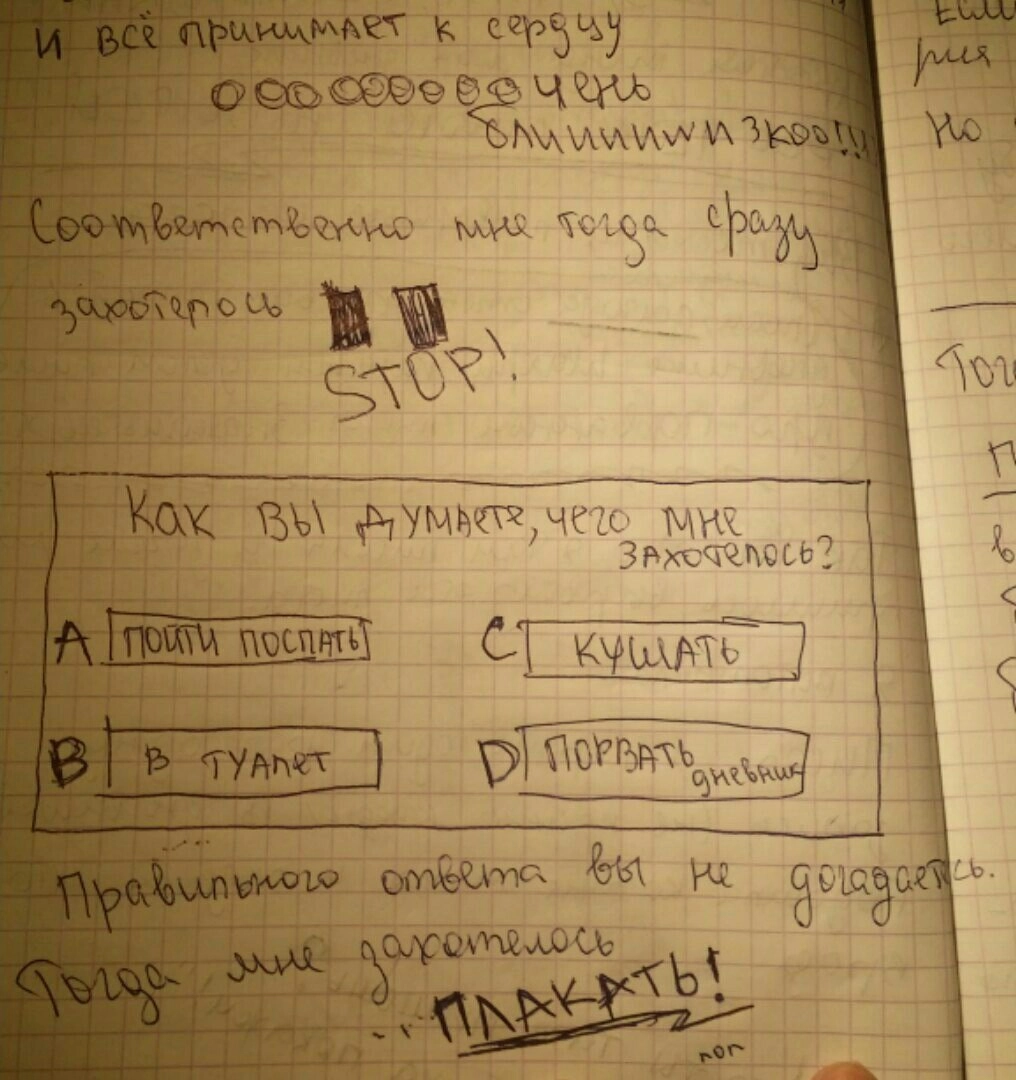 И всё принимает к сердцу
ооооооооочень
близкоо!!!
Соответственно мне тогда сразу
захотелось
STOP!
Как вы думаете, чего мне
захотелось?
A ПОЙТИ ПОСПАТЬ
C КУШАТЬ
B В ТУАЛЕТ
D ПОРВАТЬ
дневник
Правильного ответа вы не догадаетсь.
Тогда мне захотелось
... ПЛАКАТЬ!
лол
Если
рия
Но
Тог
П
в